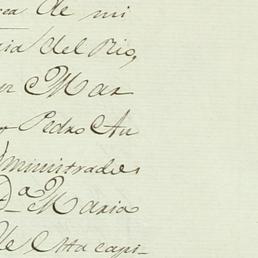 de mi
del Rio,
Mar
Pedro An
dministrador
Dª Maria
de esta capi-